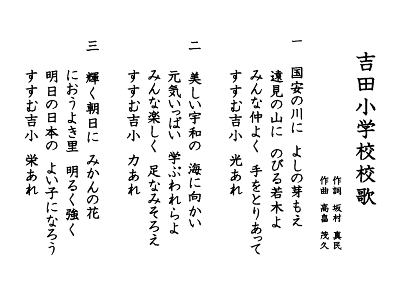 吉田小学校校歌
作詞 坂村 真民
作曲 高畠 茂久
一 国安の川に よしの芽もえ
遠見の山に のびる若木よ
みんな仲よく 手をとりあって
すすむ吉小 光あれ
二 美しい宇和の 海に向かい
元気いっぱい 学ぶわれらよ
みんな楽しく 足なみそろえ
すすむ吉小 力あれ
三 輝く朝日に みかんの花
におうよき里 明るく強く
明日の日本の よい子になろう
すすむ吉小 栄あれ